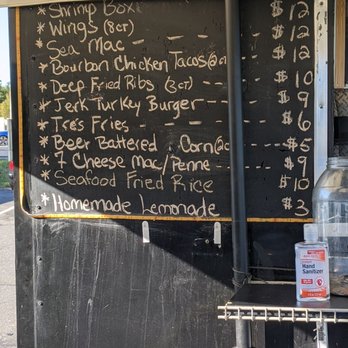 * Shrimp Box! $12
* Wings (8cr) - - - $12
* Sea Mac - - - $12
* Bourbon Chicken Tacos $12
* Deep Fried Ribs (3cr) - - $10
* Jerk Turkey Burger - - - $9
* Tre's Fries - - - $6
* Beer Battered Corn $5
* 7 Cheese Mac/Penne - $9
* Seafood Fried Rice $10
* Homemade Lemonade $3
Hand
Sanitizer